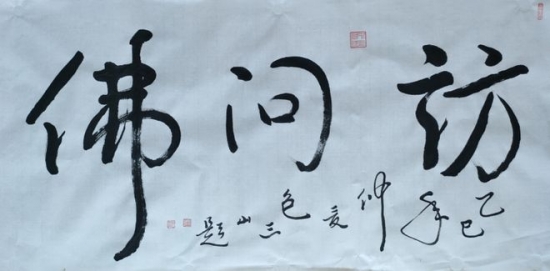 访问佛
乙巳年仲夏色三山题